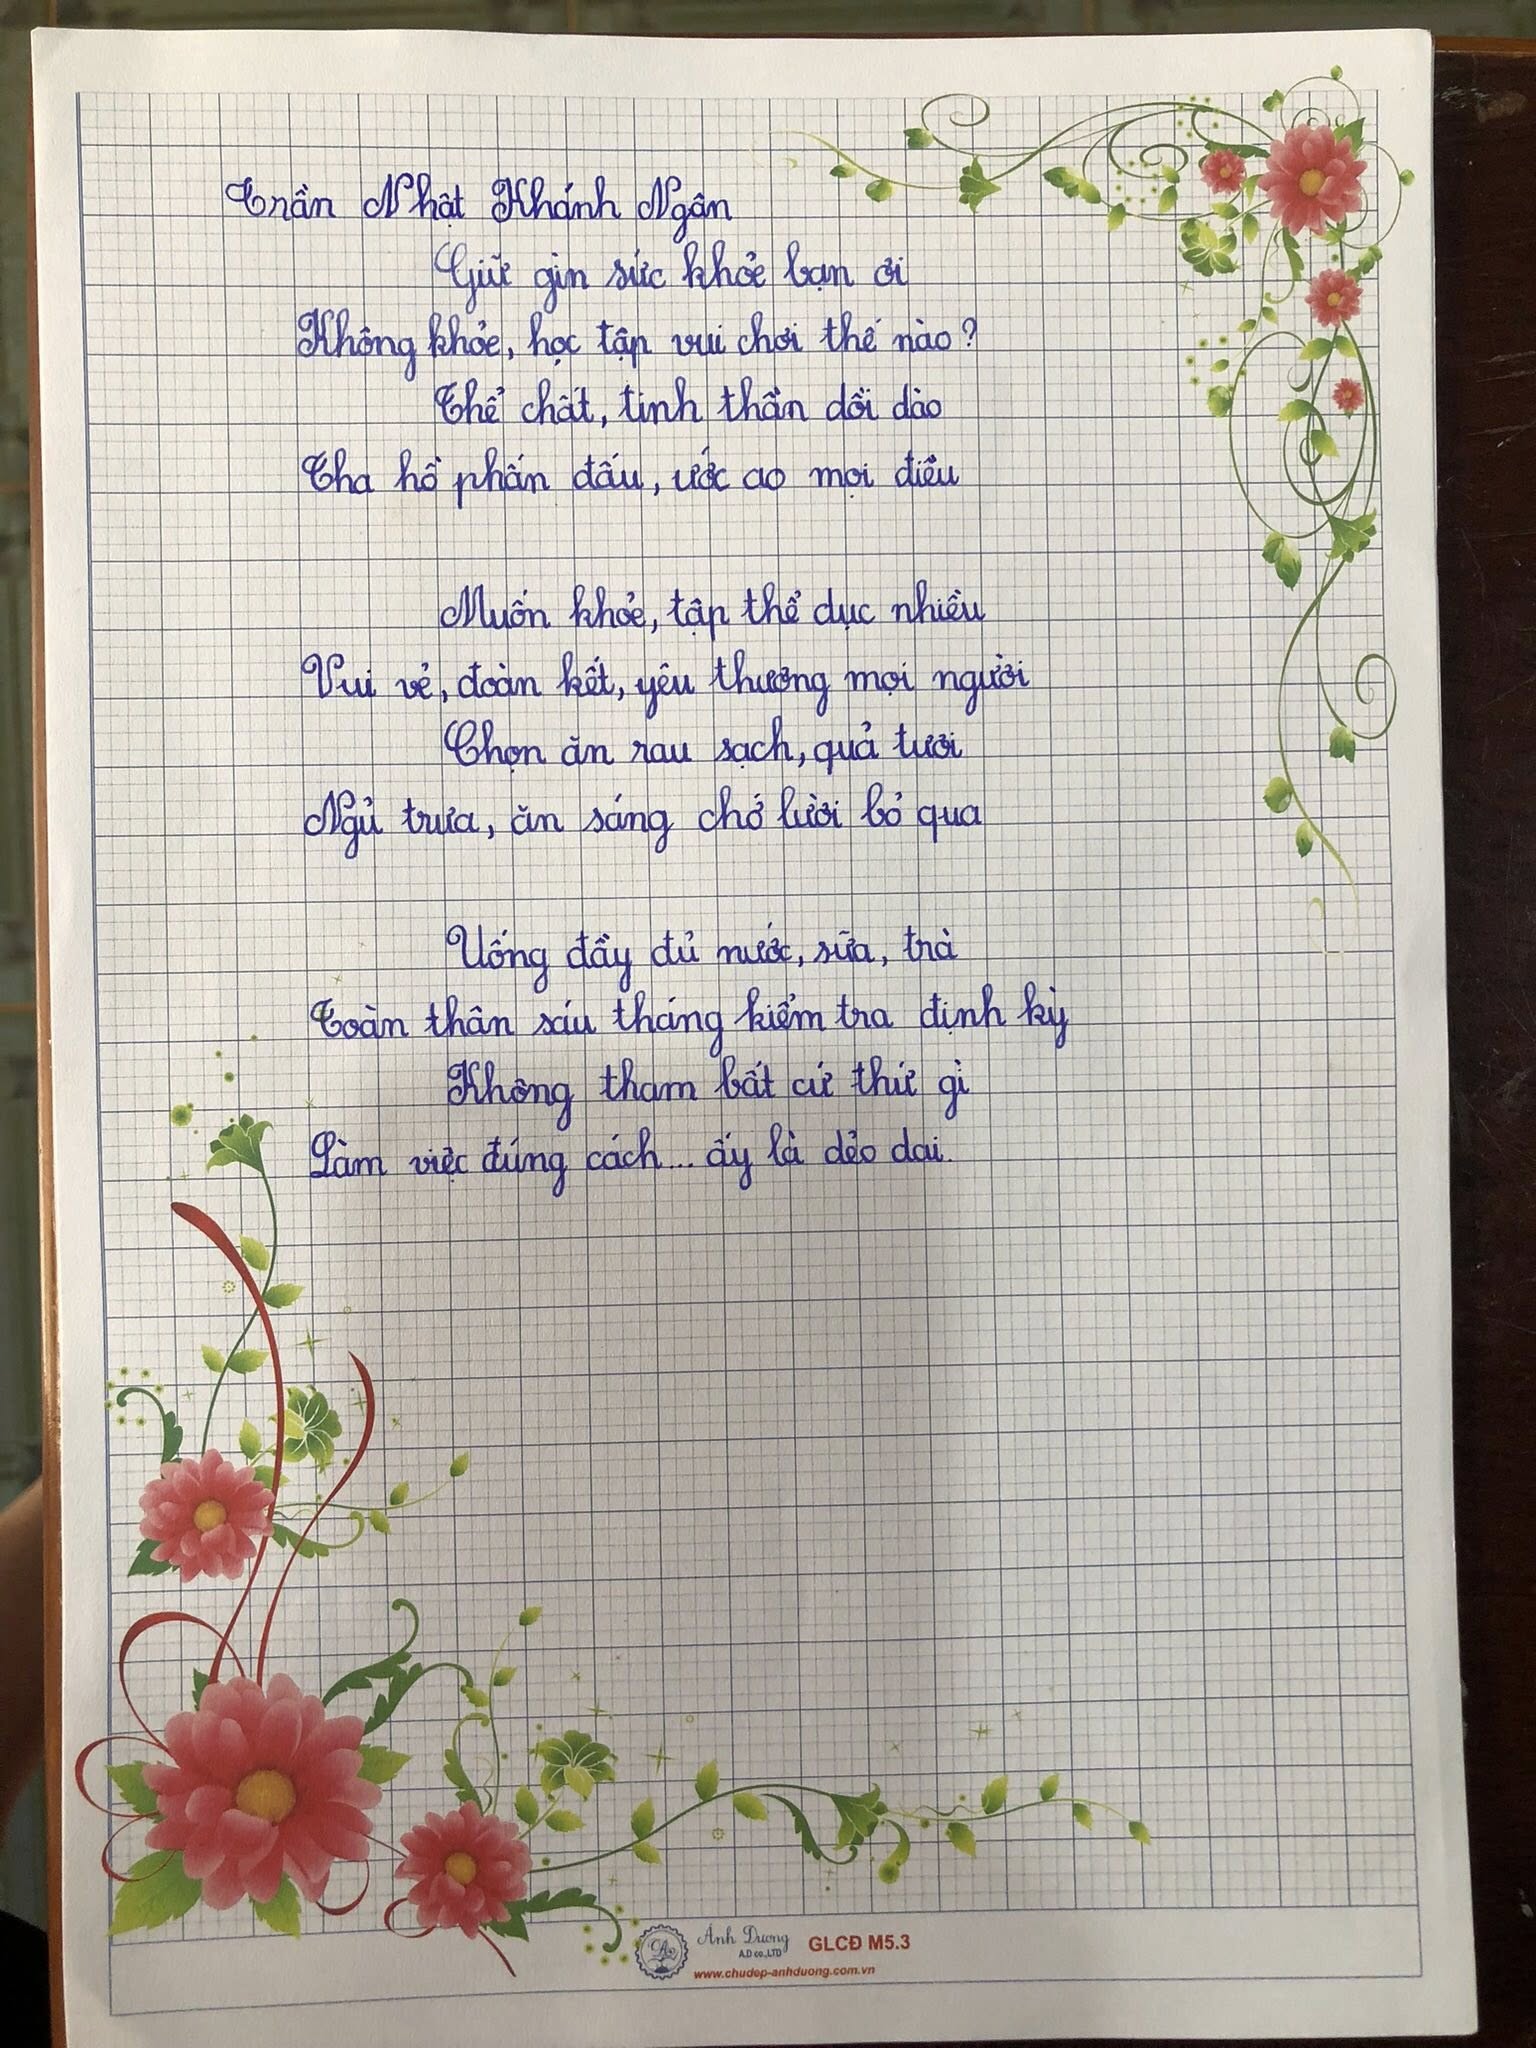 Trần Nhật Khánh Ngân
Giữ gìn sức khỏe bạn ơi
Không khỏe, học tập vui chơi thế nào?
Thể chất, tinh thần dồi dào
Tha hồ phấn đấu, ước ao mọi điều
Muốn khỏe, tập thể dục nhiều
Vui vẻ, đoàn kết, yêu thương mọi người
Chọn ăn rau sạch, quả tươi
Ngủ trưa, ăn sáng chớ lười bỏ qua
Uống đầy đủ nước, sữa, trà
Toàn thân sáu tháng kiểm tra định kỳ
Không tham bất cứ thứ gì
Làm việc đúng cách... ấy là dẻo dai.
Ánh Dương
A.D co.,LTD
GLCĐ M5.3
www.chudep-anhduong.com.vn